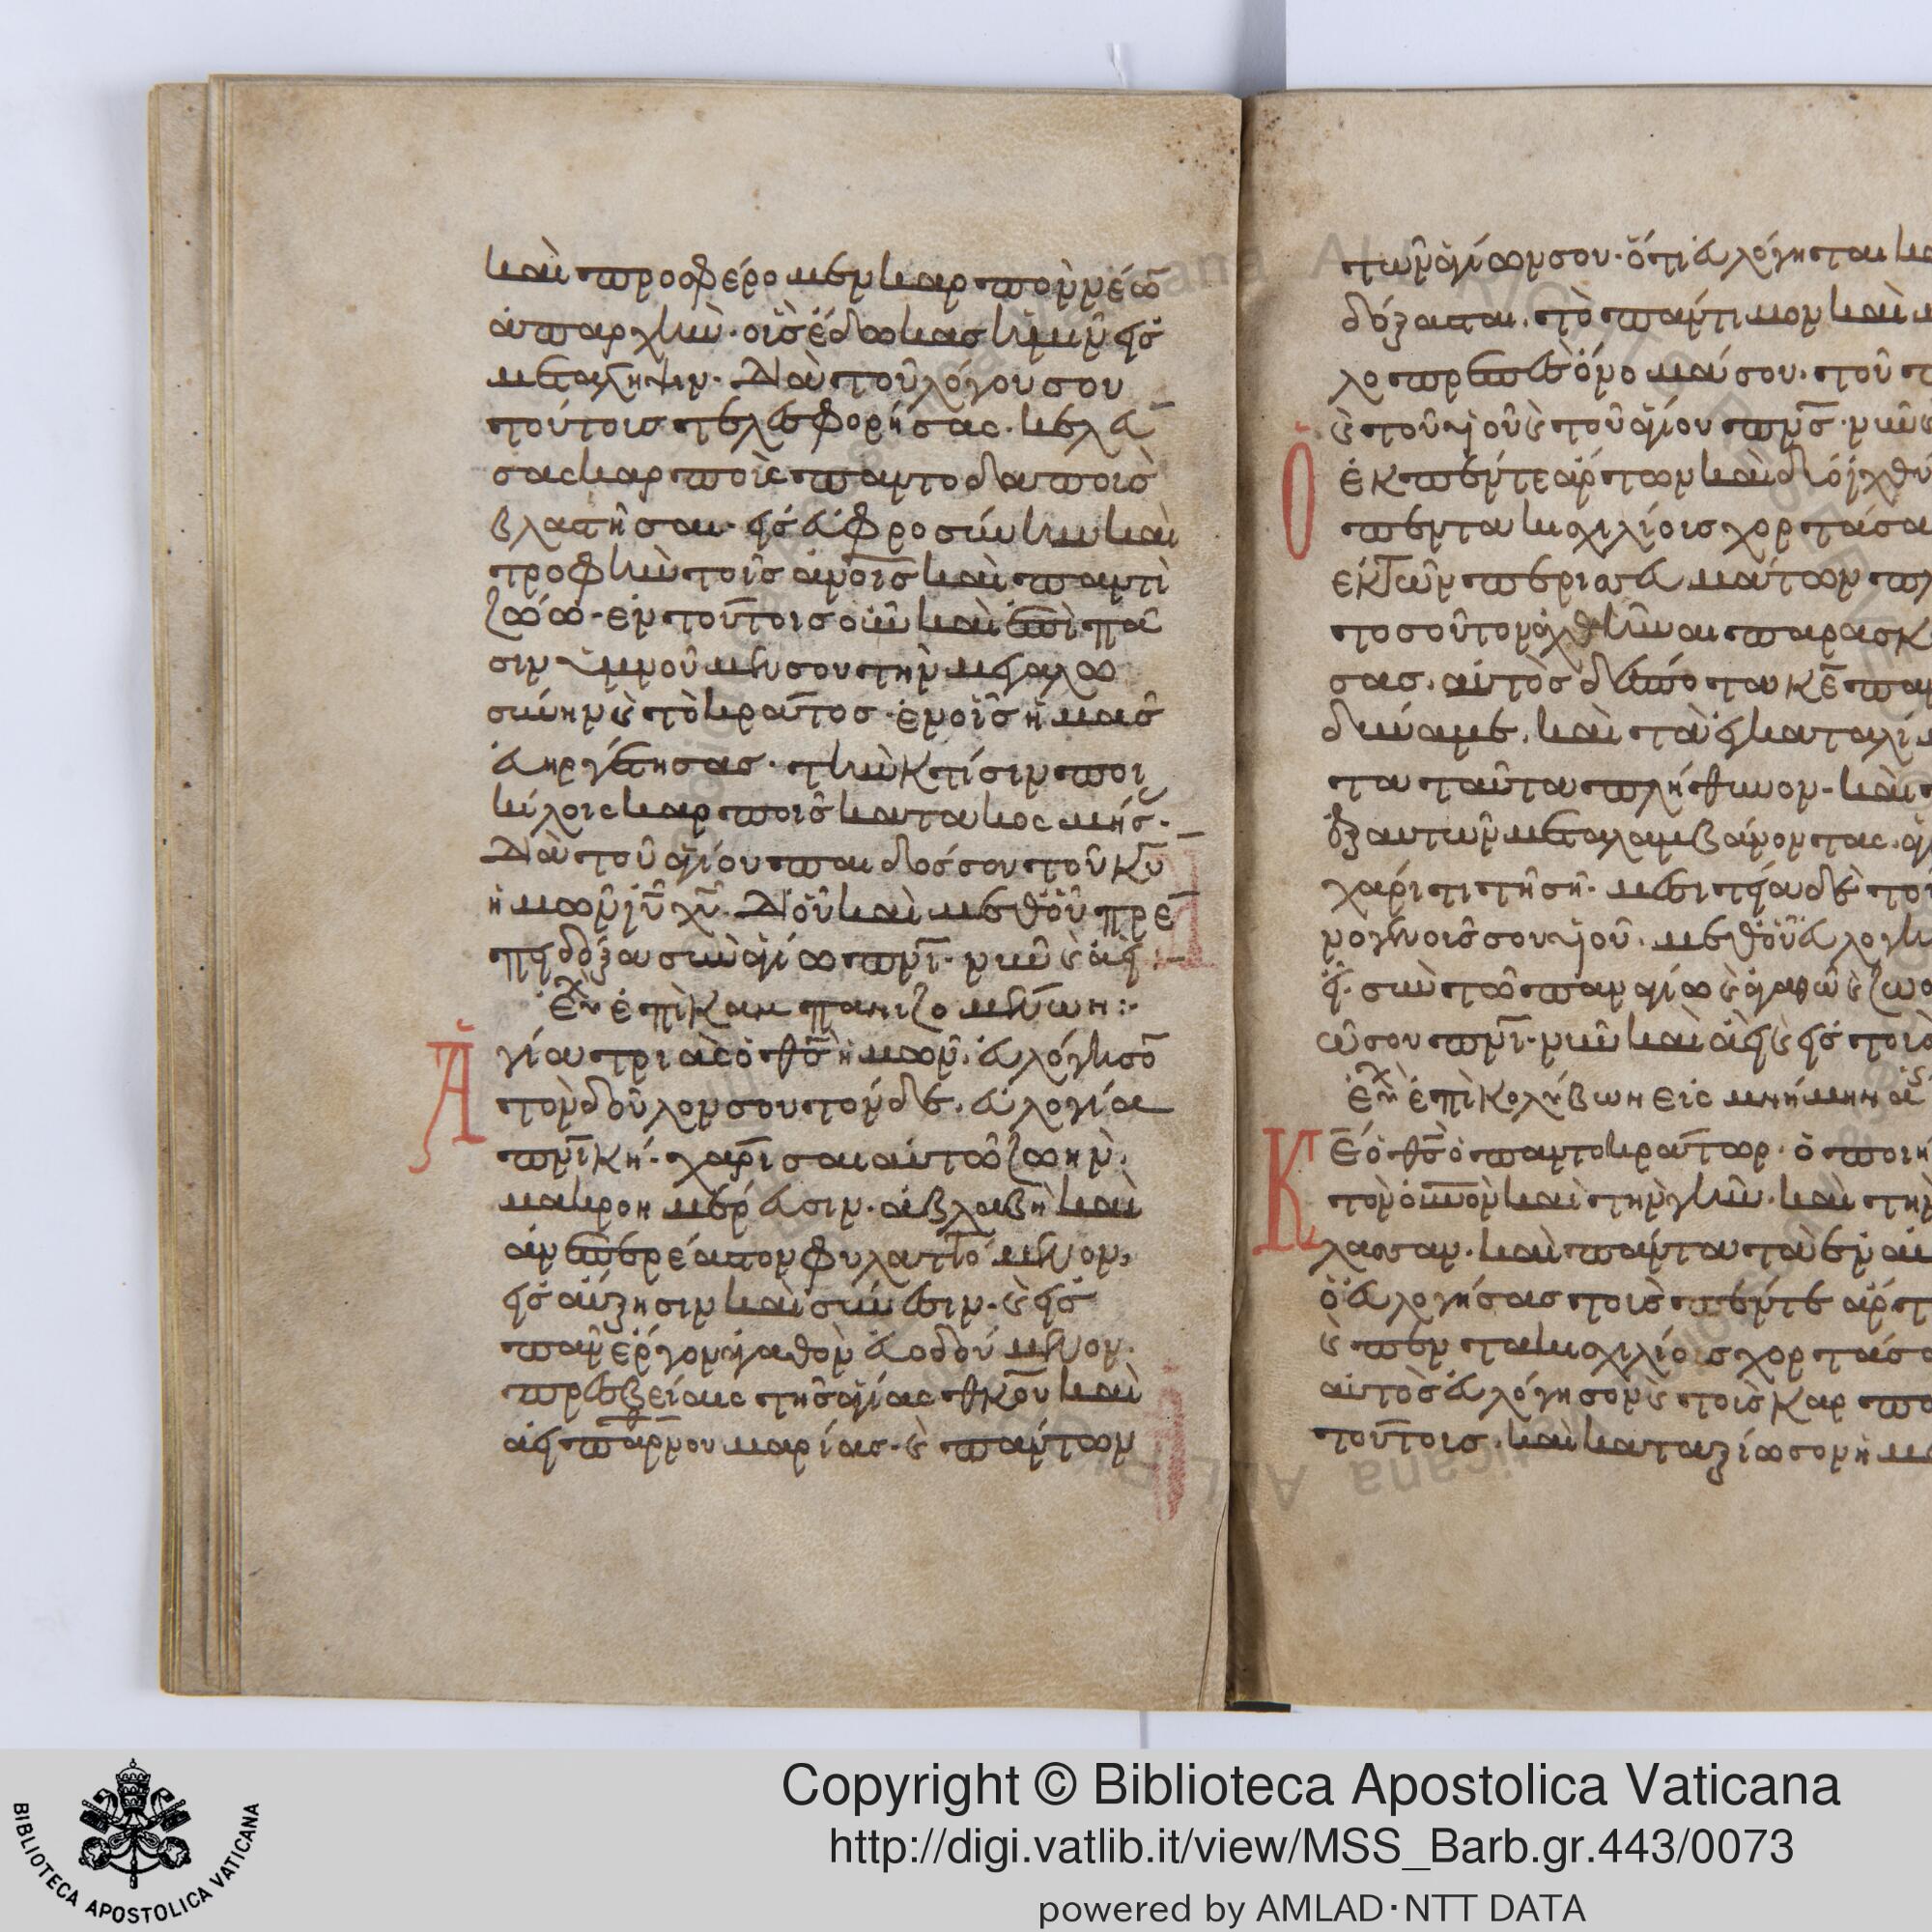 καὶ προσφέρομεν καρπὸν νέω
ἀπαρχὴν· οἷς ἔδωκας ἡμῖν εἰς
μετάληψιν· διὰ τοῦ λόγου σου
τούτοις τελεσφορήσας· κελεύ
σας καρποῖς παντοδαποῖς
βλαστῆσαι· εἰς εὐφροσύνην καὶ
τροφὴν τοῖς ἀνοις καὶ παντὶ
ζώω· ἐν τούτοις οὖν καὶ ἐπὶ πᾶ
σιν ὑμνοῦμέν σου τὴν μεγαλω
σύνην καὶ τὸ κράτος· ἐν οἷς ἡμᾶς
εὐηργέτησας· τὴν κτίσιν ποι
κίλοις καρποῖς κατακοσμής·
διὰ τοῦ ἁγίου παιδός σου τοῦ κυ
ἡμῶν ιυ χυ· δι οὗ καὶ μεθ οὗ πρέ
πει δόξα σὺν ἁγίω πνι· νῦν καὶ ἀεὶ:-
Εὐχ ἐπὶ
γία τριὰς ὁ θς ἡμῶν· εὐλόγησο
τὸν δοῦλόν σου τόνδε· εὐλογία
πνικῆ· χάρισαι αὐτῶ ζωὴν
μακροημέρευσιν· ἀβλαβῆ καὶ
ἀνεπηρέαστον φυλαττόμενον,
εἰς αὔξησιν καὶ σύνεσιν· καὶ εἰς
πᾶν ἔργον ἀγαθὸν εὐοδούμενον·
πρεσβείαις τῆς ἁγίας θκου καὶ
ἀειπαρθένου μαρίας· καὶ πάντων
τῶν ἁγίων σου· ὅτι εὐλόγηται
δόξασται· τὸ πάντιμον καὶ
λοπρεπὲς ὄνομά σου· τοῦ
καὶ τοῦ υἱοῦ καὶ τοῦ ἁγίου πνς· νῦν
Ὁ ἐκ πέντε ἄρτων καὶ δύο ἰχθύ
πεντακισχιλίοις χορτάσα
ἐκ τῶν περισσευμάτων
τοσοῦτον πλῆθος παρασκ
σας· αὐτὸς δέσποτα κε
δύναμε· καὶ τὰ
τα ταῦτα πλήθυνον· καὶ
ἐξ αὐτῶν μεταλαμβάνοντας·
χάριτι τῆ σῆ·
μονογενοῦς σου υἱοῦ· μεθ οὗ εὐλογη
εἶ· σὺν τῶ παναγίω καὶ ἀγαθῶ καὶ ζωο
ῶ σου πνι· νῦν καὶ ἀεὶ καὶ εἰς τοὺ
Εὐχ ἐπὶ κολύβων εἰς μνήμην
Κε ὁ θς ὁ παντοκράτωρ· ὁ ποιή
τὸν οὐνον καὶ τὴν γῆν· καὶ τὴν
λασσαν· καὶ πάντα τὰ ἐν
ὁ εὐλογήσας τοὺς πέντε ἄρτ
καὶ πεντακισχιλίους χορτάσα
αὐτὸς εὐλόγησον καὶ τοὺς καρπο
τούτοις· καὶ καταξίωσον ἡμ
Copyright © Biblioteca Apostolica Vaticana
http://digi.vatlib.it/view/MSS_Barb.gr.443/0073
powered by AMLAD·NTT DATA
BIBLIOTECA APOSTOLICA VATICANA